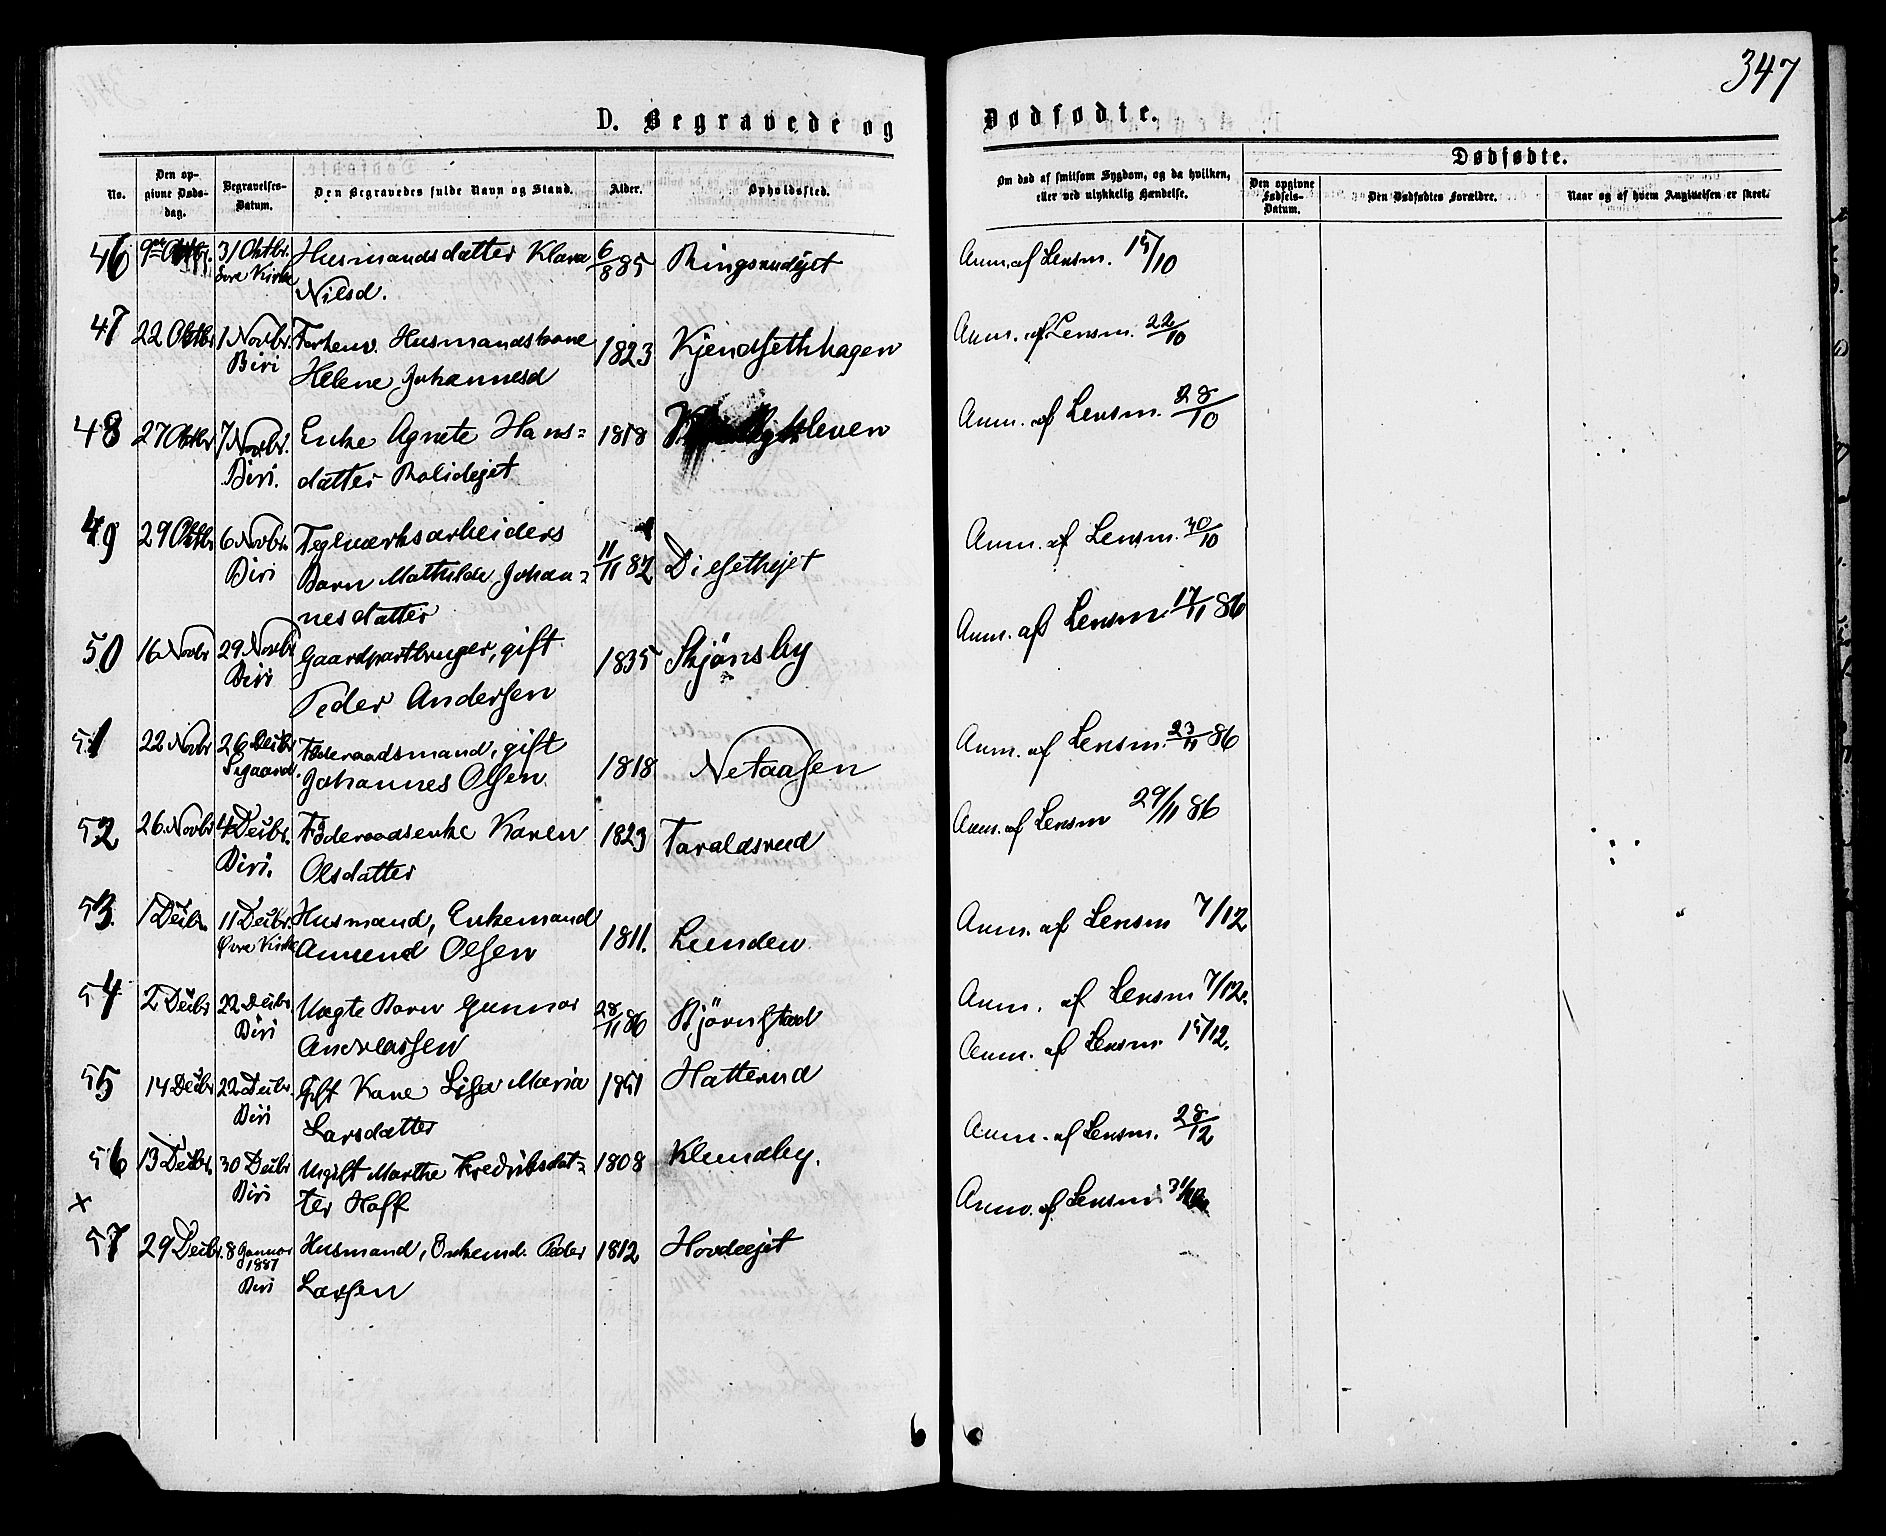 347
D. Begravede og Dødfødte.
No.
Den opgivne Døds-dag.
Begravelses-Datum.
Den Begravedes fulde Navn og Stand.
Alder.
Opholdssted.
Om død af smitsom Sygdom, og da hvilken, eller ved ulykkelig Hændelse.
Dødfødte.
Den opgivne Fødsels-Datum.
Den Dødfødtes Forældre.
Naar og af hvem Angivelsen er skeet.
46 31 Oktbr. Husmandsdatter Klara 6/8 85 Ringsrudejet Anm. af Lensm. 15/10
Øvre Kirke Nilsd.
47 22 Oktbr 1 Novbr. Forhenv. Husmandskone 1823 Kjendsethhagen Anm. af Lensm. 22/10
Biri Helene Johannesd
48 27 Oktbr 7 Novbr. Enke Agnete Hans= 1818 Anm. af Lensm. 28/10
Biri. datter Rolidejet
49 29 Oktbr 6 Novbr. Teglværksarbeiders 11/11 82 Diesethejet Anm. af Lensm. 30/10
Biri Barn Mathilde Johan=
nesdatter
50 16 Novbr 29 Novbr Gaardpartbruger, gift 1835 Skjönsby Anm. af Lensm. 17/11 86
Biri Peder Andersen
51 22 Novbr 26 Decbr Föderaadsmand, gift 1818 Netaasen Anm. af Lensm. 23/11 86
Snaard. Johannes Olsen
52 26 Novbr 4 Decbr. Föderaadsenke Karen 1823 Taraldsrud Anm. af Lensm 29/11 86
Biri. Olsdatter
53. 1 Decbr. 11 Decbr. Husmand, Enkemand 1811. Lunden Anm. af Lensm 7/12
Øvre Kirke Amund Olsen
54 2 Decbr 22 Decbr Uægte Barn Gunnar 28/11 86 Björnstad Anm. af Lensm 7/12.
Biri Andreassen
55 14 Decbr 22 Decbr. Gift Kone Lisa Maria 1851 Hatterud Anm. af Lensm. 15/12.
Biri Larsdatter
56 13 Decbr. 30 Decbr Ugift Marthe Fredriksdat= 1808 Klundby. Anm. af Lensm. 28/12
x Biri ter Hoff
57 29 Decbr. 8 Januar Husmand, Enkemd. Peder 1812 Hovdeejet Anm. af Lensm
1887
Biri Larsen